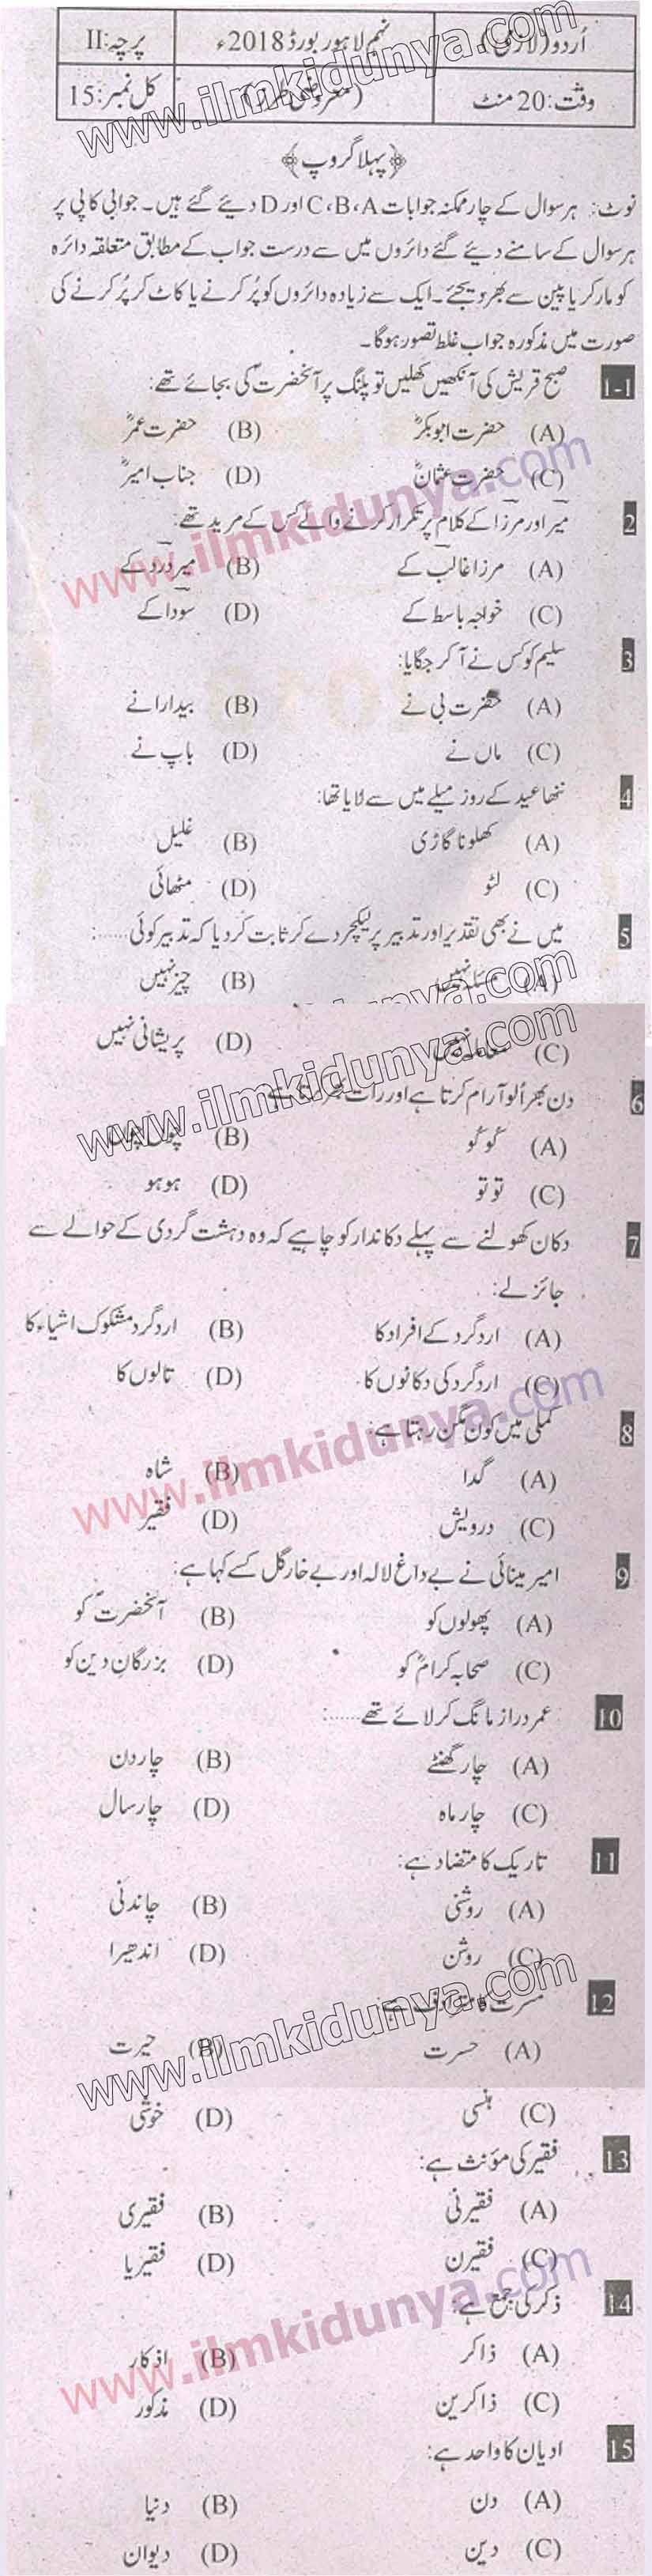 اُردو (لازمی) نہم لاہور بورڈ 2018ء پرچہ: II
وقت: 20 منٹ (معروضی طرز) کل نمبر: 15
﴿پہلا گروپ﴾
نوٹ: ہر سوال کے چار ممکنہ جوابات C، B، A اور D دیئے گئے ہیں۔ جوابی کاپی پر
ہر سوال کے سامنے دیئے گئے دائروں میں سے درست جواب کے مطابق متعلقہ دائرہ
کو مارکر یا پین سے بھر دیجئے۔ ایک سے زیادہ دائروں کو پُر کرنے یا کاٹ کر پُر کرنے کی
صورت میں مذکورہ جواب غلط تصور ہوگا۔
1-1 صبح قریش کی آنکھیں کھلیں تو پلنگ پر آنحضرتؐ کی بجائے تھے:
(A) حضرت ابوبکرؓ (B) حضرت عمرؓ
(C) حضرت عثمانؓ (D) جناب امیرؓ
2 میر اور مرزا کے کلام پر تکرار کرنے والے کس کے مرید تھے:
(A) مرزا غالب کے (B) میر درد کے
(C) خواجہ باسط کے (D) سودا کے
3 سلیم کو کس نے آ کر جگایا:
(A) حضرت بی نے (B) بیدارا نے
(C) ماں نے (D) باپ نے
4 ننھا عید کے روز میلے میں سے لایا تھا:
(A) کھلونا گاڑی (B) غلیل
(C) لٹو (D) مٹھائی
5 میں نے بھی تقدیر اور تدبیر پر لیکچر دے کر ثابت کر دیا کہ تدبیر کوئی ......:
(A) مسئلہ نہیں (B) چیز نہیں
(C) نہیں (D) پریشانی نہیں
6 دن بھر اُلو آرام کرتا ہے اور رات بھر
(A) گو گو (B)
(C) تو تو (D) ہو ہو
7 دکان کھولنے سے پہلے دکاندار کو چاہیے کہ وہ دہشت گردی کے حوالے سے
جائز لے:
(A) اردگرد کے افراد کا (B) اردگرد مشکوک اشیاء کا
(C) اردگرد کی دکانوں کا (D) تالوں کا
8 کملی میں کون مگن رہتا ہے:
(A) گدا (B) شاہ
(C) درویش (D) فقیر
9 امیر مینائی نے بے داغ لالہ اور بے خار گل کسے کہا ہے:
(A) پھولوں کو (B) آنحضرتؐ کو
(C) صحابہ کرامؓ کو (D) بزرگانِ دین کو
10 عمر دراز مانگ کر لائے تھے ......:
(A) چار گھنٹے (B) چار دن
(C) چار ماہ (D) چار سال
11 تاریک کا متضاد ہے:
(A) روشنی (B) چاندنی
(C) روشن (D) اندھیرا
12 مسرت کا مترادف ہے:
(A) حسرت (B) حیرت
(C) ہنسی (D) خوشی
13 فقیر کی مؤنث ہے:
(A) فقیرنی (B) فقیری
(C) فقیرن (D) فقیریا
14 ذکر کی جمع ہے:
(A) ذاکر (B) اذکار
(C) ذاکرین (D) مذکور
15 ادیان کا واحد ہے:
(A) دن (B) دنیا
(C) دین (D) دیوان
www.ilmkidunya.com
www.ilmkidunya.com
www.ilmkidunya.com
www.ilmkidunya.com
www.ilmkidunya.com
www.ilmkidunya.com
www.ilmkidunya.com